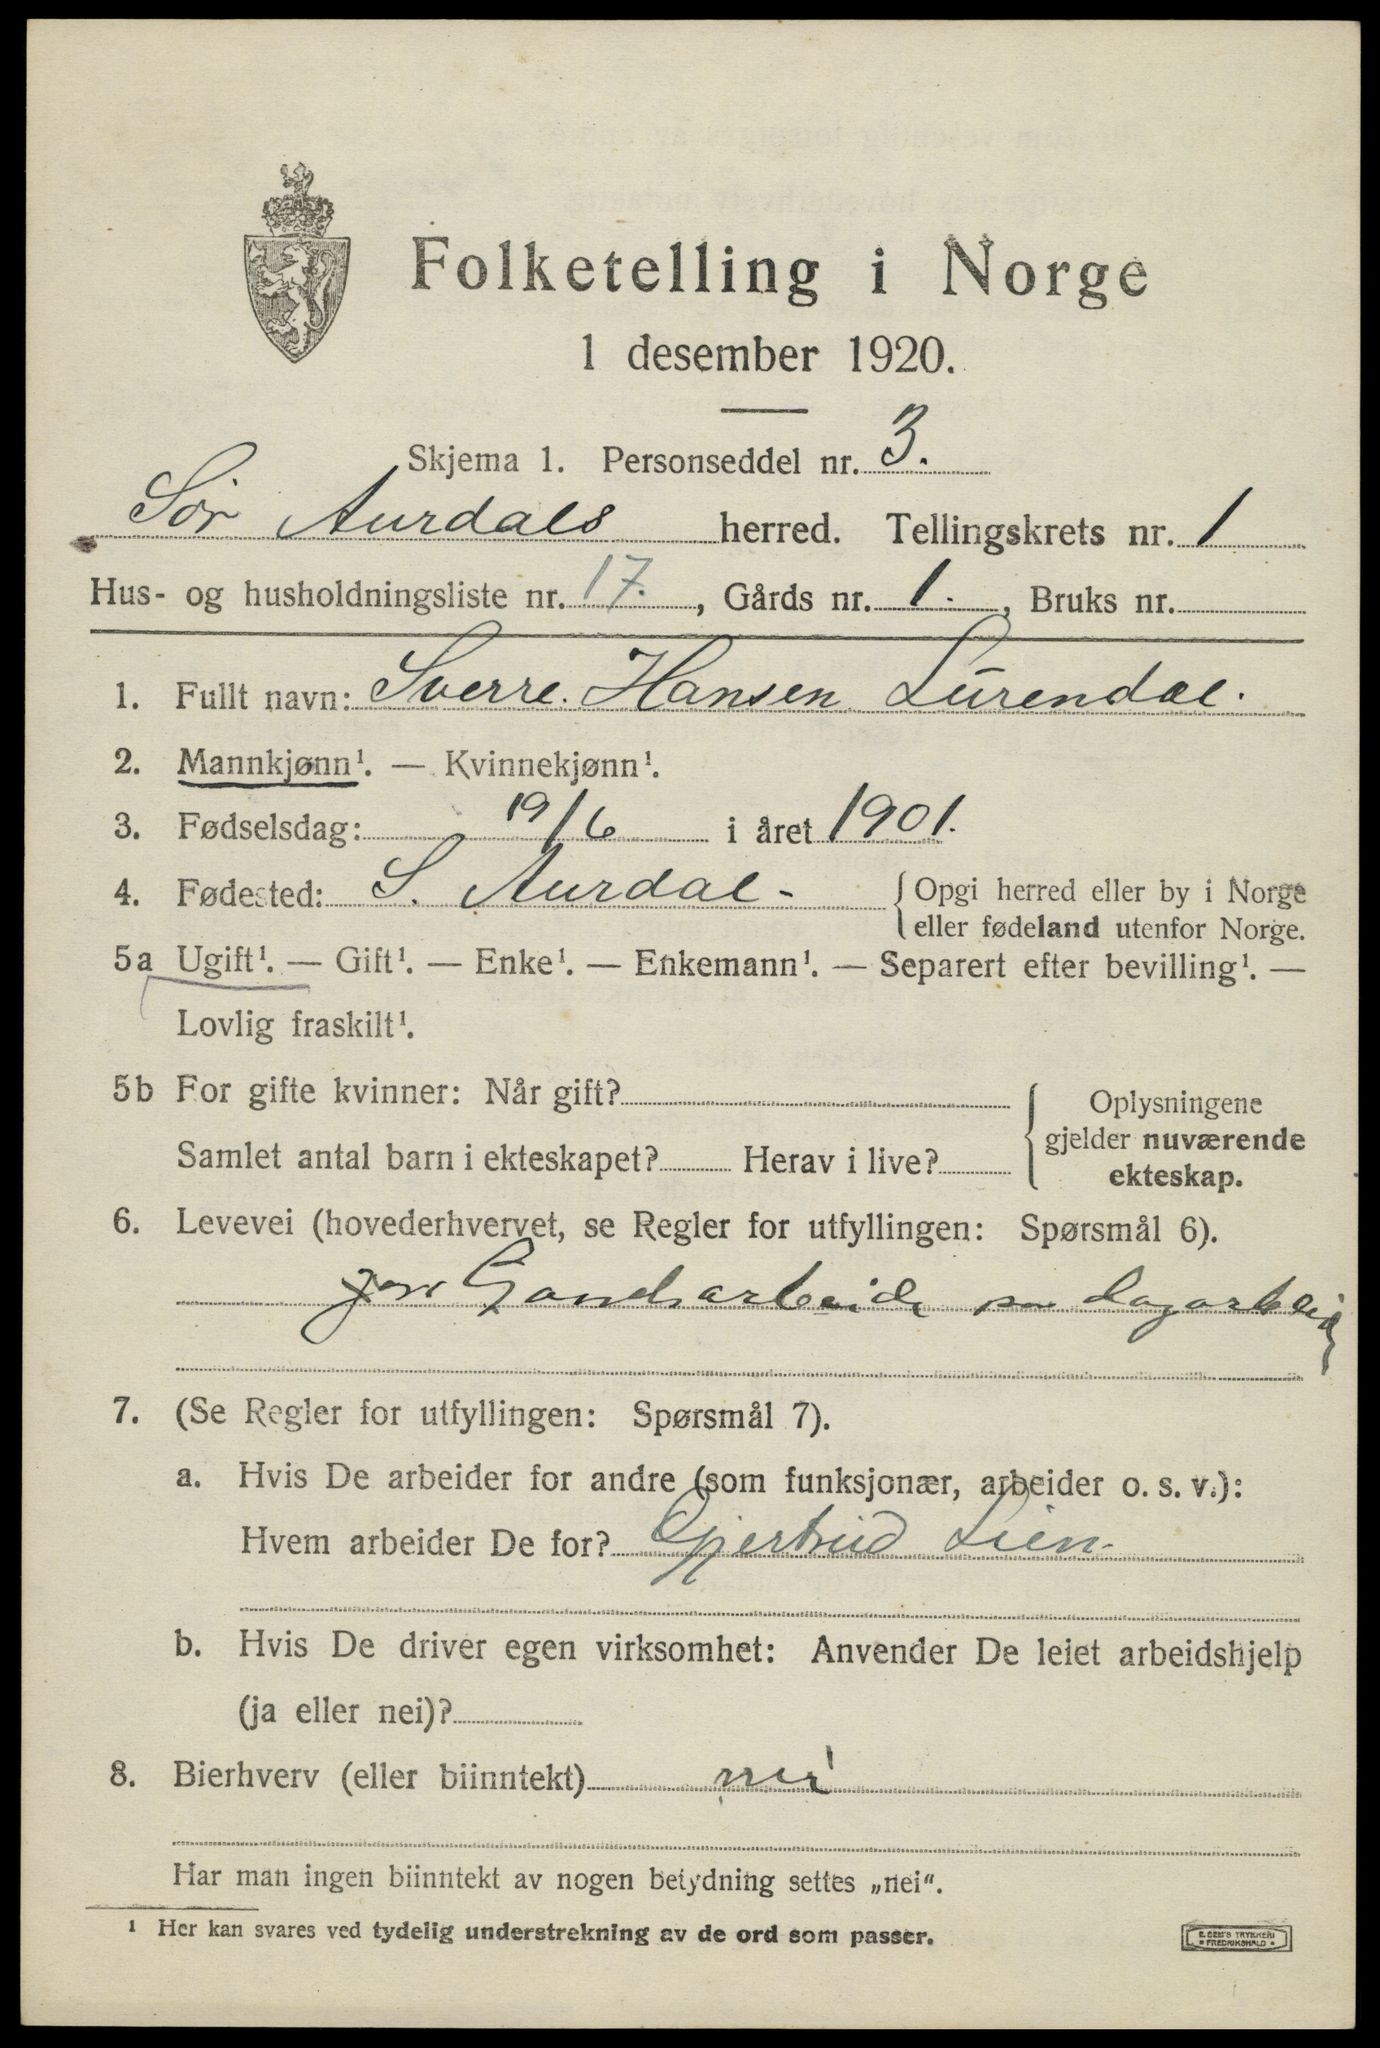 Folketelling i Norge
1 desember 1920.
Skjema 1. Personseddel nr. 3.
Sør Aurdals herred. Tellingskrets nr. 1
Hus- og husholdningsliste nr. 17. , Gårds nr. 1. , Bruks nr.
1. Fullt navn: Sverre. Hansen Lürendal.
2. Mannkjønn¹. — Kvinnekjønn¹.
3. Fødselsdag: 19/6 i året 1901.
4. Fødested: S. Aurdal - { Opgi herred eller by i Norge
eller fødeland utenfor Norge.
5a Ugift¹. — Gift¹. — Enke¹. — Enkemann¹. — Separert efter bevilling¹. —
Lovlig fraskilt¹.
5b For gifte kvinner: Når gift?
Samlet antal barn i ekteskapet? Herav i live?
{ Oplysningene
gjelder nuværende
ekteskap.
6. Levevei (hovederhvervet, se Regler for utfyllingen: Spørsmål 6).
dagarbeid
7. (Se Regler for utfyllingen: Spørsmål 7).
a. Hvis De arbeider for andre (som funksjonær, arbeider o. s. v.):
Hvem arbeider De for? Gjertrud Lien.
b. Hvis De driver egen virksomhet: Anvender De leiet arbeidshjelp
(ja eller nei)?
8. Bierhverv (eller biinntekt) nei
Har man ingen biinntekt av nogen betydning settes „nei“.
¹ Her kan svares ved tydelig understrekning av de ord som passer.
E. SEM'S TRYKKERI
• FREDRIKSHALD •